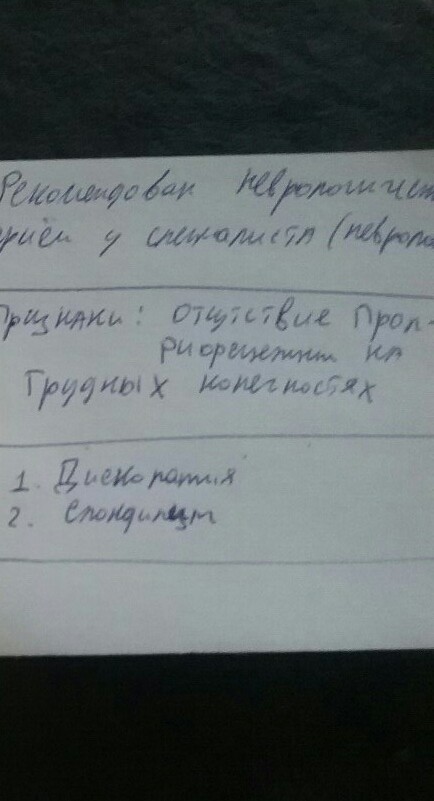 Рекомендован неврологичес
приём у специалиста (невропа
Признаки: отсутствие Проп-
риорецепции на
Грудных конечностях
1. Дископатия
2. Спондилит